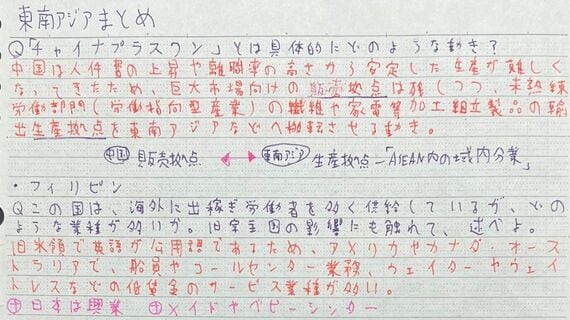 東南アジアまとめ
Q「チャイナプラスワン」とは具体的にどのような動き?
中国は人件費の上昇や離職率の高さから安定した生産が難しく
なってきたため、巨大市場向けの販売拠点は残しつつ、未熟練
労働部門(労働指向型産業)の繊維や家電等加工組立製品の輸
出生産拠点を東南アジアなどへ移転させる動き。
中国 販売拠点 ↔ 東南アジア 生産拠点-「ASEAN内の域内分業」
・フィリピン
Qこの国は、海外に出稼ぎ労働者を多く供給しているが、どの
ような業種が多いか。旧宗主国の影響にも触れて、述べよ。
旧米領で英語が公用語であるため、アメリカやカナダ・オース
トラリアで、船員やコールセンター業務、ウェイターやウェイ
トレスなどの低賃金のサービス業種が多い。
㊉日本は興業 ㊉メイドやベビーシッター